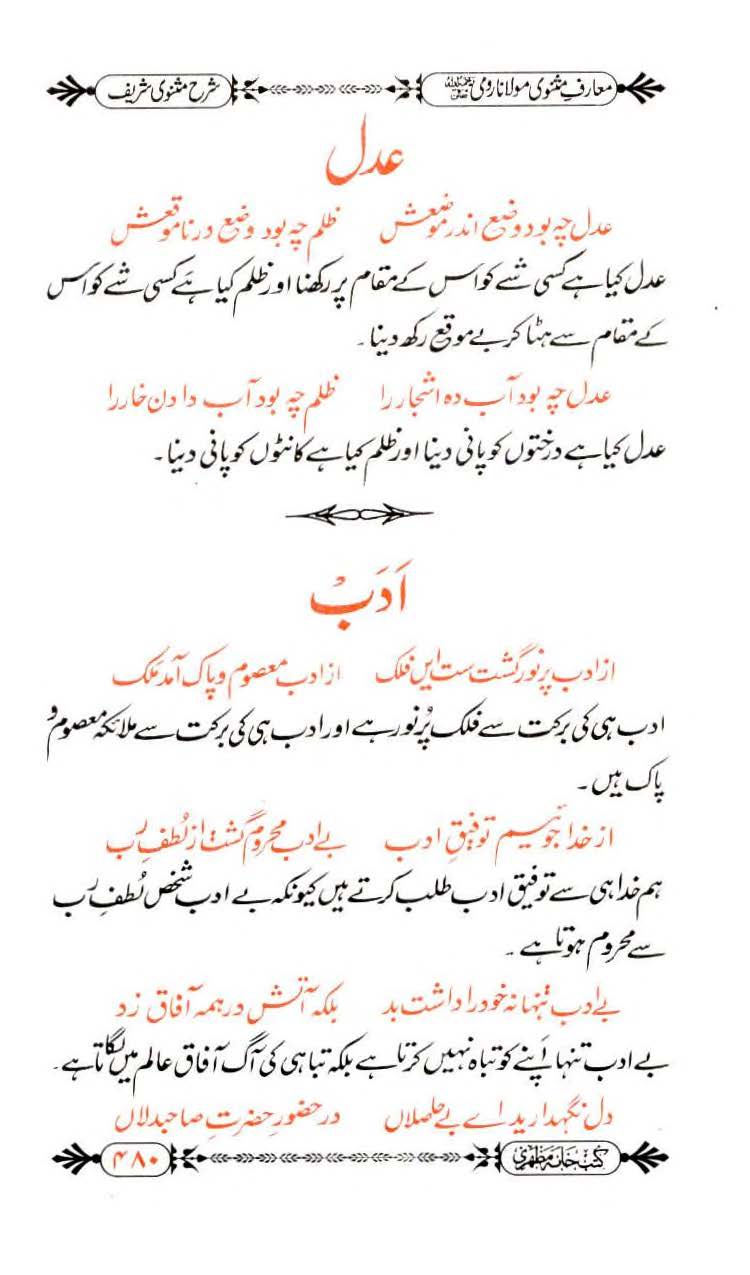 معارفِ مثنوی مولانا رومی رحمۃ اللہ علیہ
شرح مثنوی شریف
عدل
عدل چہ بود وضع اندر موضعش ظلم چہ بود وضع در ناموقعش
عدل کیا ہے کسی شے کو اس کے مقام پر رکھنا اور ظلم کیا ہے کسی شے کو اس
کے مقام سے ہٹا کر بے موقع رکھ دینا۔
عدل چہ بود آب دہ اشجار را ظلم چہ بود آب دادن خار را
عدل کیا ہے درختوں کو پانی دینا اور ظلم کیا ہے کانٹوں کو پانی دینا۔
اَدَبْ
از ادب پر نور گشت ست ایں فلک از ادب معصوم و پاک آمد مَلک
ادب ہی کی برکت سے فلک پُر نور ہے اور ادب ہی کی برکت سے ملائکہ معصوم و
پاک ہیں۔
از خدا جوئیم توفیقِ ادب بے ادب محروم گشت از لُطفِ رب
ہم خدا ہی سے توفیق ادب طلب کرتے ہیں کیونکہ بے ادب شخص لُطفِ رب
سے محروم ہوتا ہے۔
بے ادب تنہا نہ خود را داشت بد بلکہ آتش در ہمہ آفاق زد
بے ادب تنہا اَپنے کو تباہ نہیں کرتا ہے بلکہ تباہی کی آگ آفاق عالم میں لگاتا ہے۔
دل نگہدارید اے بے حاصلاں در حضورِ حضرتِ صاحبدلاں
کتب خانہ مظہری
۴۸۰